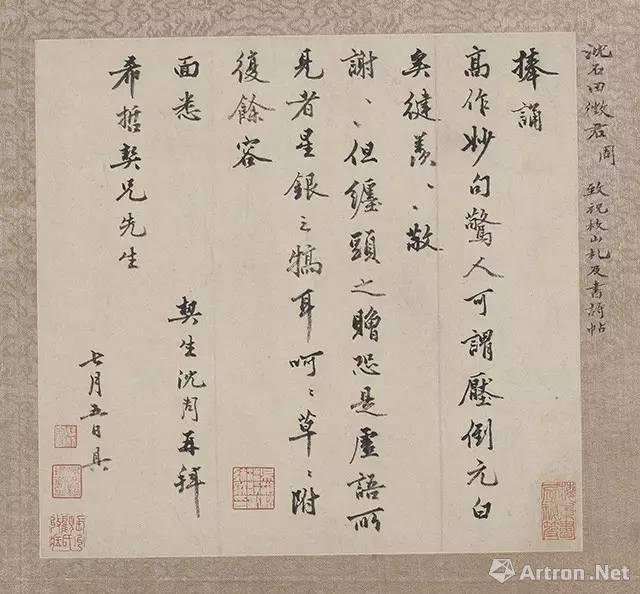 沈石田徵君周 致祝枝山札及書詩帖
捧誦
高作妙句驚人可謂壓倒元白
矣健羨〻〻敬
謝〻〻但纏頭之贈恐是虛語所
見者星銀之犒耳呵〻草〻附
復餘容
面悉 契生沈周再拜
希哲契兄先生
七月五日具
Artron.Net